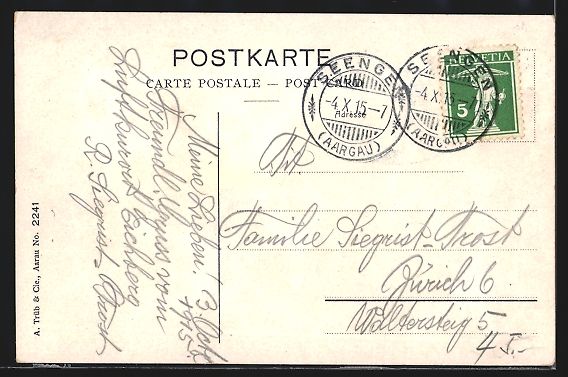 POSTKARTE
CARTE POSTALE — POST CARD
SEENGEN
-4.X.15-7
(AARGAU)
SEENGEN
-4.X.15-7
(AARGAU)
HELVETIA
5
Adresse
Meine Lieben! 3. Okt. 1915
Freundl. Gruss vom
Luftkurort Eichberg
R. Siegrist-Trost
Tit.
Familie Siegrist-Trost
Zürich 6
Waltersteig 5
A. Trüb & Cie., Aarau No. 2241